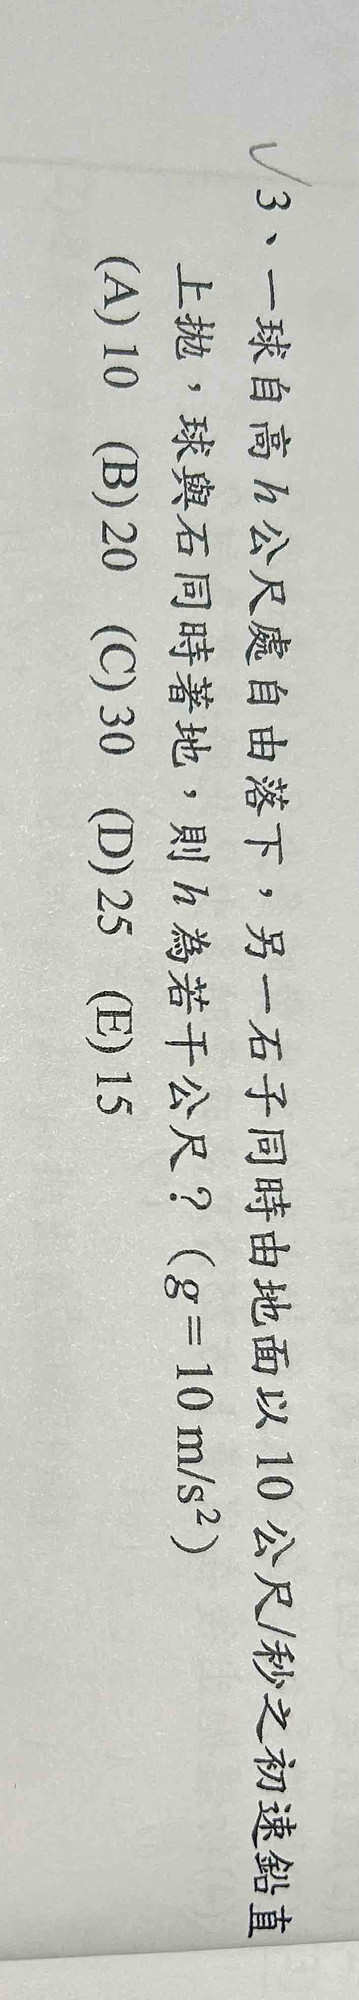 ✓3、一球自高 h 公尺處自由落下，另一石子同時由地面以 10 公尺/秒之初速鉛直
上拋，球與石同時著地，則 h 為若干公尺？（g = 10 m/s²）
(A) 10 (B) 20 (C) 30 (D) 25 (E) 15